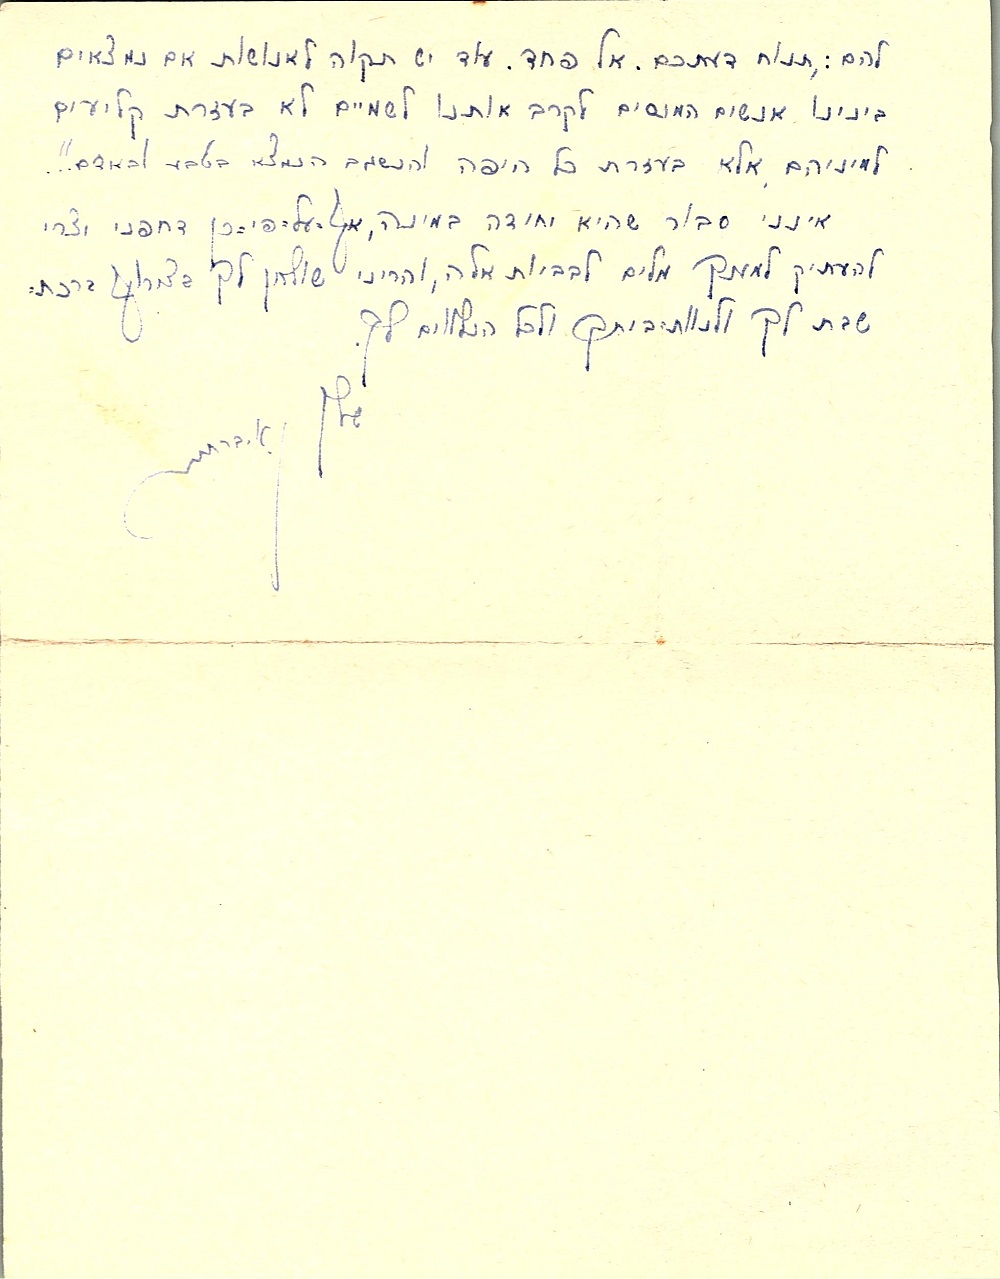 להם: ,,תנוח דעתכם. אל פחד. עוד יש תקוה לאנושות אם נמצאים
בינינו אנשים המנסים לקרב אותנו לשמיים לא בעזרת קליעים
למיניהם, אלא בעזרת כל היפה והנשגב הנמצא בטבע ובאדם!!..
אינני סבור שהיא יחידה במינה, אף-על-פי-כן דחפני יצרי
להעתיק למענך מלים לבביות אלה, והריני שולחן לך בצרוף ברכת-
שבת לך ולנוות-ביתך ולכל הנלווים לך.
שלך